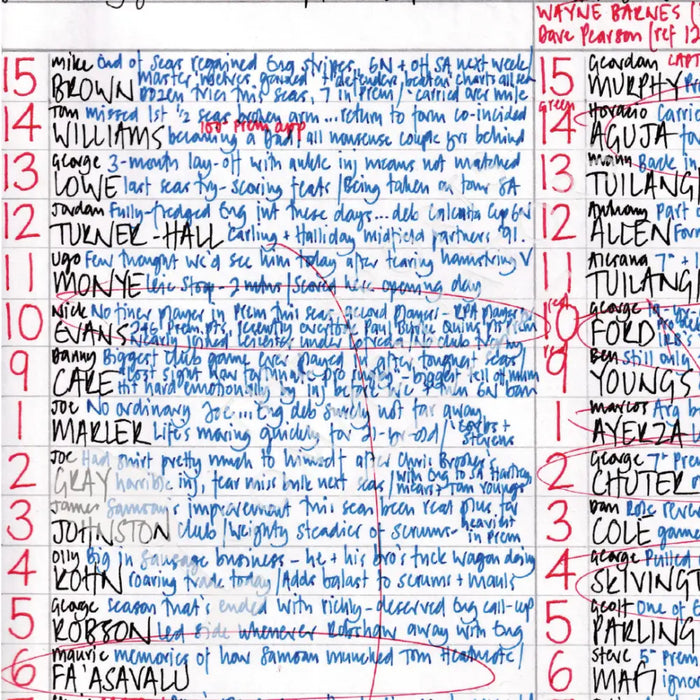 WAYNE BARNES
Dave Pearson (ref 12
15 Mike End of seas regained Eng stripes, 6N + off SA next week/
BROWN master, defenders beaten charts all
dozen tries this seas, 7 in prem / carried over mile
14 Tom missed 1st 1/2 seas broken arm... return to form co-incided
WILLIAMS becoming a dad / all nonsense couple for behind
100th prem app
13 George 3-month lay-off with ankle inj means not matched
LOWE last seas try-scoring feats / Being taken on tour SA
12 Jordan Fully-fledged Eng int these days... deb Calcutta Cup 6N
TURNER-HALL Carling + Halliday midfield partners '91.
11 Ugo Few thought we'd see him today after tearing hamstring V
MONYE Leic Stoop - 2 mths / scored here opening day
10 Nick No finer player in Prem this seas, accord players - RPA player
EVANS 246 Prem pts, recently overtook Paul Burke Quins
nearly joined Leicester under
9 Danny Biggest club game ever played in, after toughest seas/
CARE lost sight how fortunate pro
hit hard emotionally by inj before WC + men 6N ban
1 Joe No ordinary Joe... Eng deb surely not far away
MARLER Life's moving quickly for 21-yr-old / Corbs + Stevens
2 Joe Had smirt pretty much to himself after Chris Brooker's
GRAY horrible inj, fear miss bulk next seas / with Eng to SA Hartley
means Tom Youngs
3 James Samoan's improvement this seas been real plus for
JOHNSTON club / Weighty steadier of scrums - heaviest
in prem
4 Olly Big in sausage business - he + his bro's truck wagon doing
KOHN roaring trade today / Adds ballast to scrums + mauls
5 George season that's ended with richly-deserved Eng call-up
ROBSON Led side whenever Robshaw away with Eng
6 Maurie memories of how Samoan munched Tom Heathcote /
FA'ASAVALU
15 Geordan CAPT
MURPHY
green
14 Horacio Carri
AGUJA for
13 Manu Back in
TUILAGI
12 Anthony Part
ALLEN Form
11 Alesana 7th + 1
TUILAGI
red
10 George 19-yr
FORD IRB's
red
9 Ben still only
YOUNGS
1 Marcos Arg b
AYERZA
2 George 7th Prem
CHUTER
3 Dan Role rever
COLE game
4 George Pulled
SKIVINGT
5 Geoff One of E
PARLING
6 Steve 5th prem
MAFI ignor